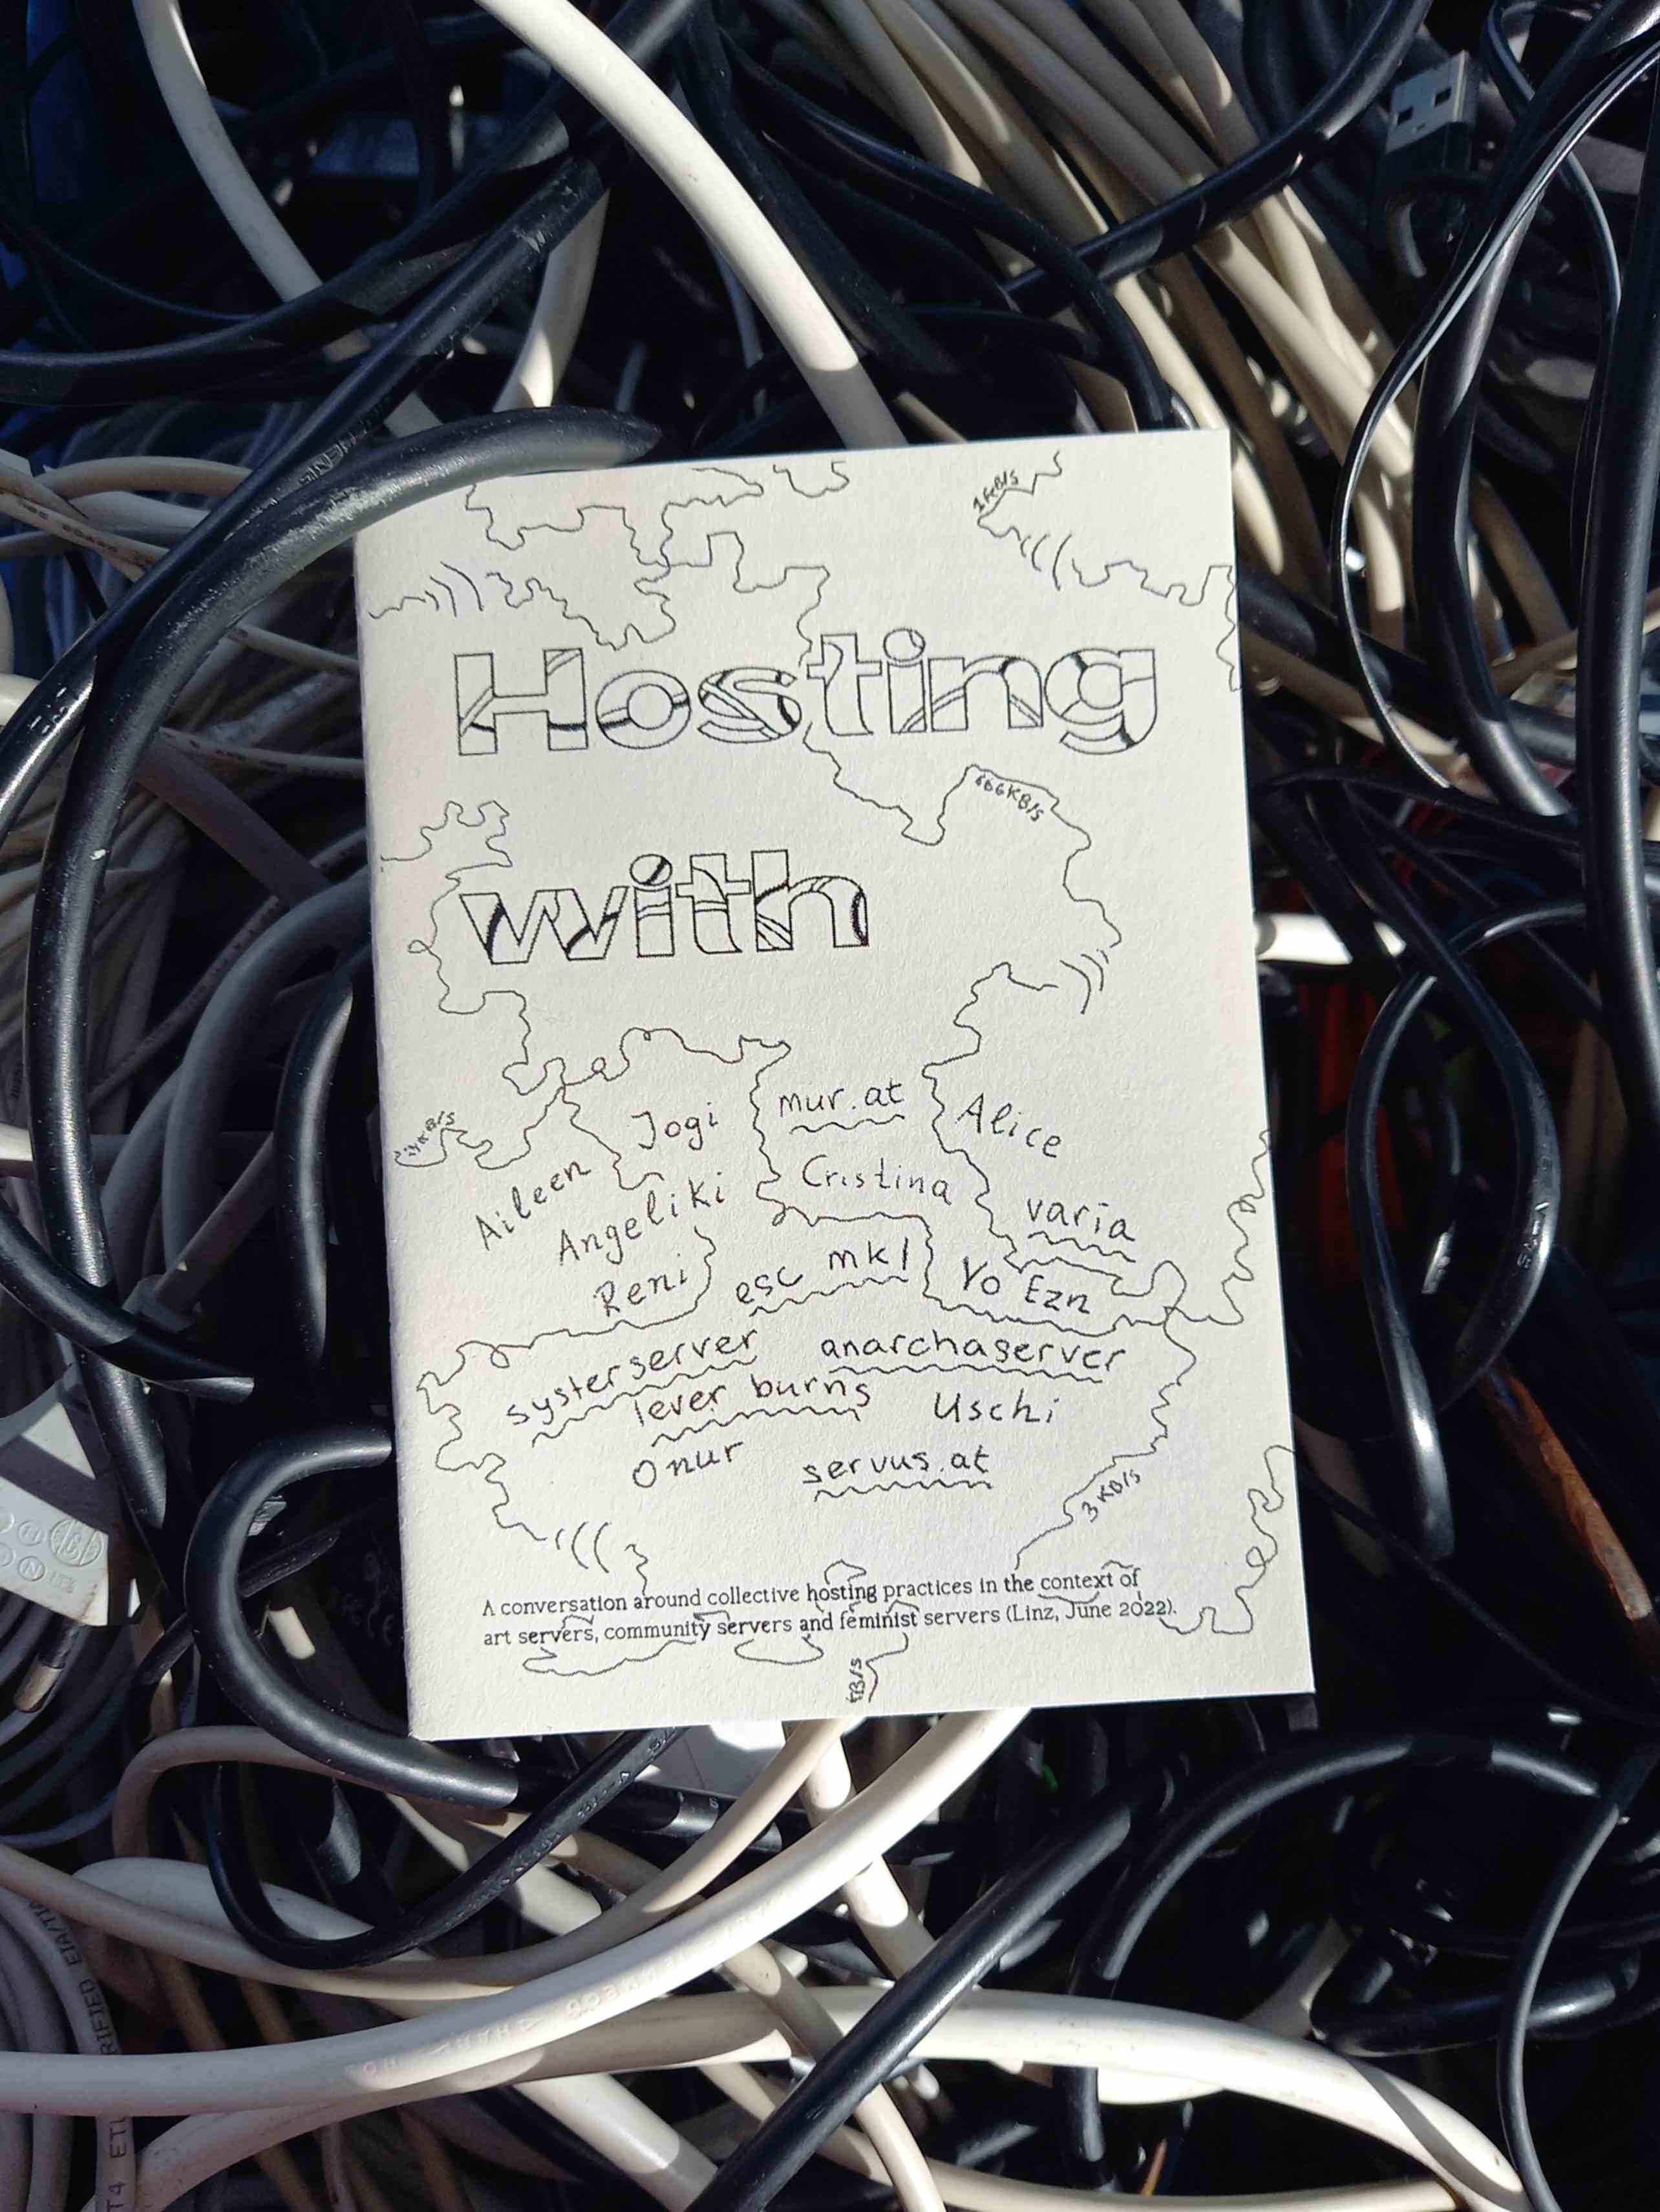 Hosting
with
mur.at
Jogi
Alice
Aileen
Cristina
Angeliki
varia
Reni
esc mkl
Yo
Ezn
systerserver
anarchaserver
lever burns
Uschi
Onur
servus.at
666KB/s
3 KB/s
A conversation around collective hosting practices in the context of
art servers, community servers and feminist servers (Linz, June 2022).